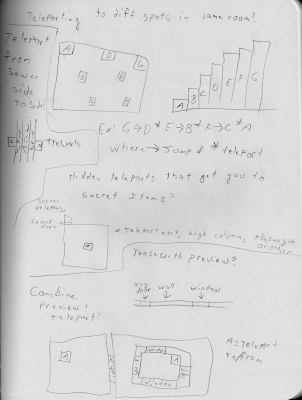 Teleporting to diff spots in same room?
Teleport
from
lower
side
to side
A
D
G
B
E
C
F
A
B
C
D
E
F
G
* teleports
Ex: G→D* E→B* F→C* A
Where → Jump & * teleport
Hidden teleports that get you to
secret items?
secret
teleport
secret
door
* Teleport exit, high column,
or other
Tease with preview?
Combine
preview &
teleport?
key
door
wall
window
A
window
A
window
A = Teleport
to/from